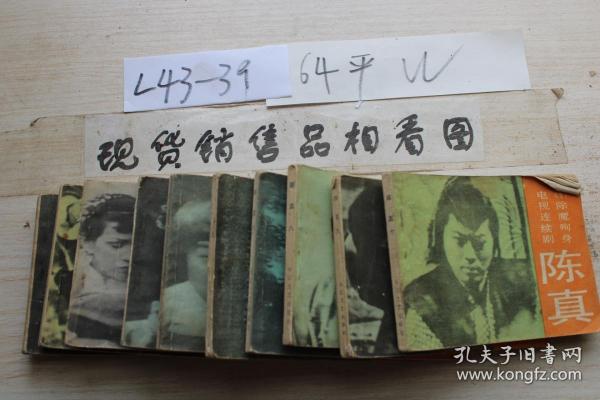 L43-39
64平 W
现货销售品相看图
电视连续剧
除魔殉身
陈真
孔夫子旧书网
www.kongfz.com